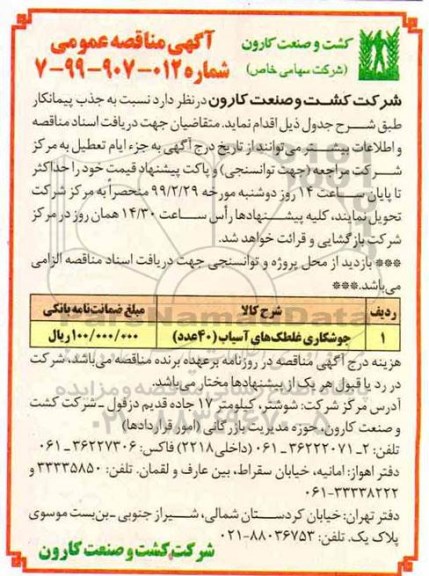 کشت و صنعت کارون
(شرکت سهامی خاص)
آگهی مناقصه عمومی
شماره ۰۱۲-۹۰۷-۹۹-۷
شرکت کشت و صنعت کارون در نظر دارد نسبت به جذب پیمانکار
طبق شرح جدول ذیل اقدام نماید. متقاضیان جهت دریافت اسناد مناقصه
و اطلاعات بیشتر می‌توانند از تاریخ درج آگهی به جزء ایام تعطیل به مرکز
شرکت مراجعه (جهت توانسنجی) و پاکت پیشنهاد قیمت خود را حداکثر
تا پایان ساعت ۱۴ روز دوشنبه مورخه ۹۹/۲/۲۹ منحصراً به مرکز شرکت
تحویل نمایند، کلیه پیشنهادها رأس ساعت ۱۴/۳۰ همان روز در مرکز
شرکت بازگشایی و قرائت خواهد شد.
*** بازدید از محل پروژه و توانسنجی جهت دریافت اسناد مناقصه الزامی
می‌باشد.***
ردیف شرح کالا مبلغ ضمانت‌نامه بانکی
۱ جوشکاری غلطک‌های آسیاب (۴۰عدد) ۱۰۰/۰۰۰/۰۰۰ ریال
هزینه درج آگهی مناقصه در روزنامه بر عهده برنده مناقصه می‌باشد، شرکت
در رد یا قبول هر یک از پیشنهادها مختار می‌باشد.
آدرس مرکز شرکت: شوشتر، کیلومتر ۱۷ جاده قدیم دزفول ـ شرکت کشت
و صنعت کارون، حوزه مدیریت بازرگانی (امور قراردادها)
تلفن: ۲ـ ۳۶۲۲۲۰۷۱-۰۶۱ (داخلی ۲۲۱۸) فاکس: ۳۶۲۲۷۳۰۶-۰۶۱
دفتر اهواز: امانیه، خیابان سقراط، بین عارف و لقمان. تلفن: ۳۳۳۳۵۸۵۰ و
۳۳۳۳۸۲۲۲-۰۶۱
دفتر تهران: خیابان کردستان شمالی، شیراز جنوبی ـ بن‌بست موسوی
پلاک یک. تلفن: ۸۸۰۳۶۷۵۳-۰۲۱
شرکت کشت و صنعت کارون